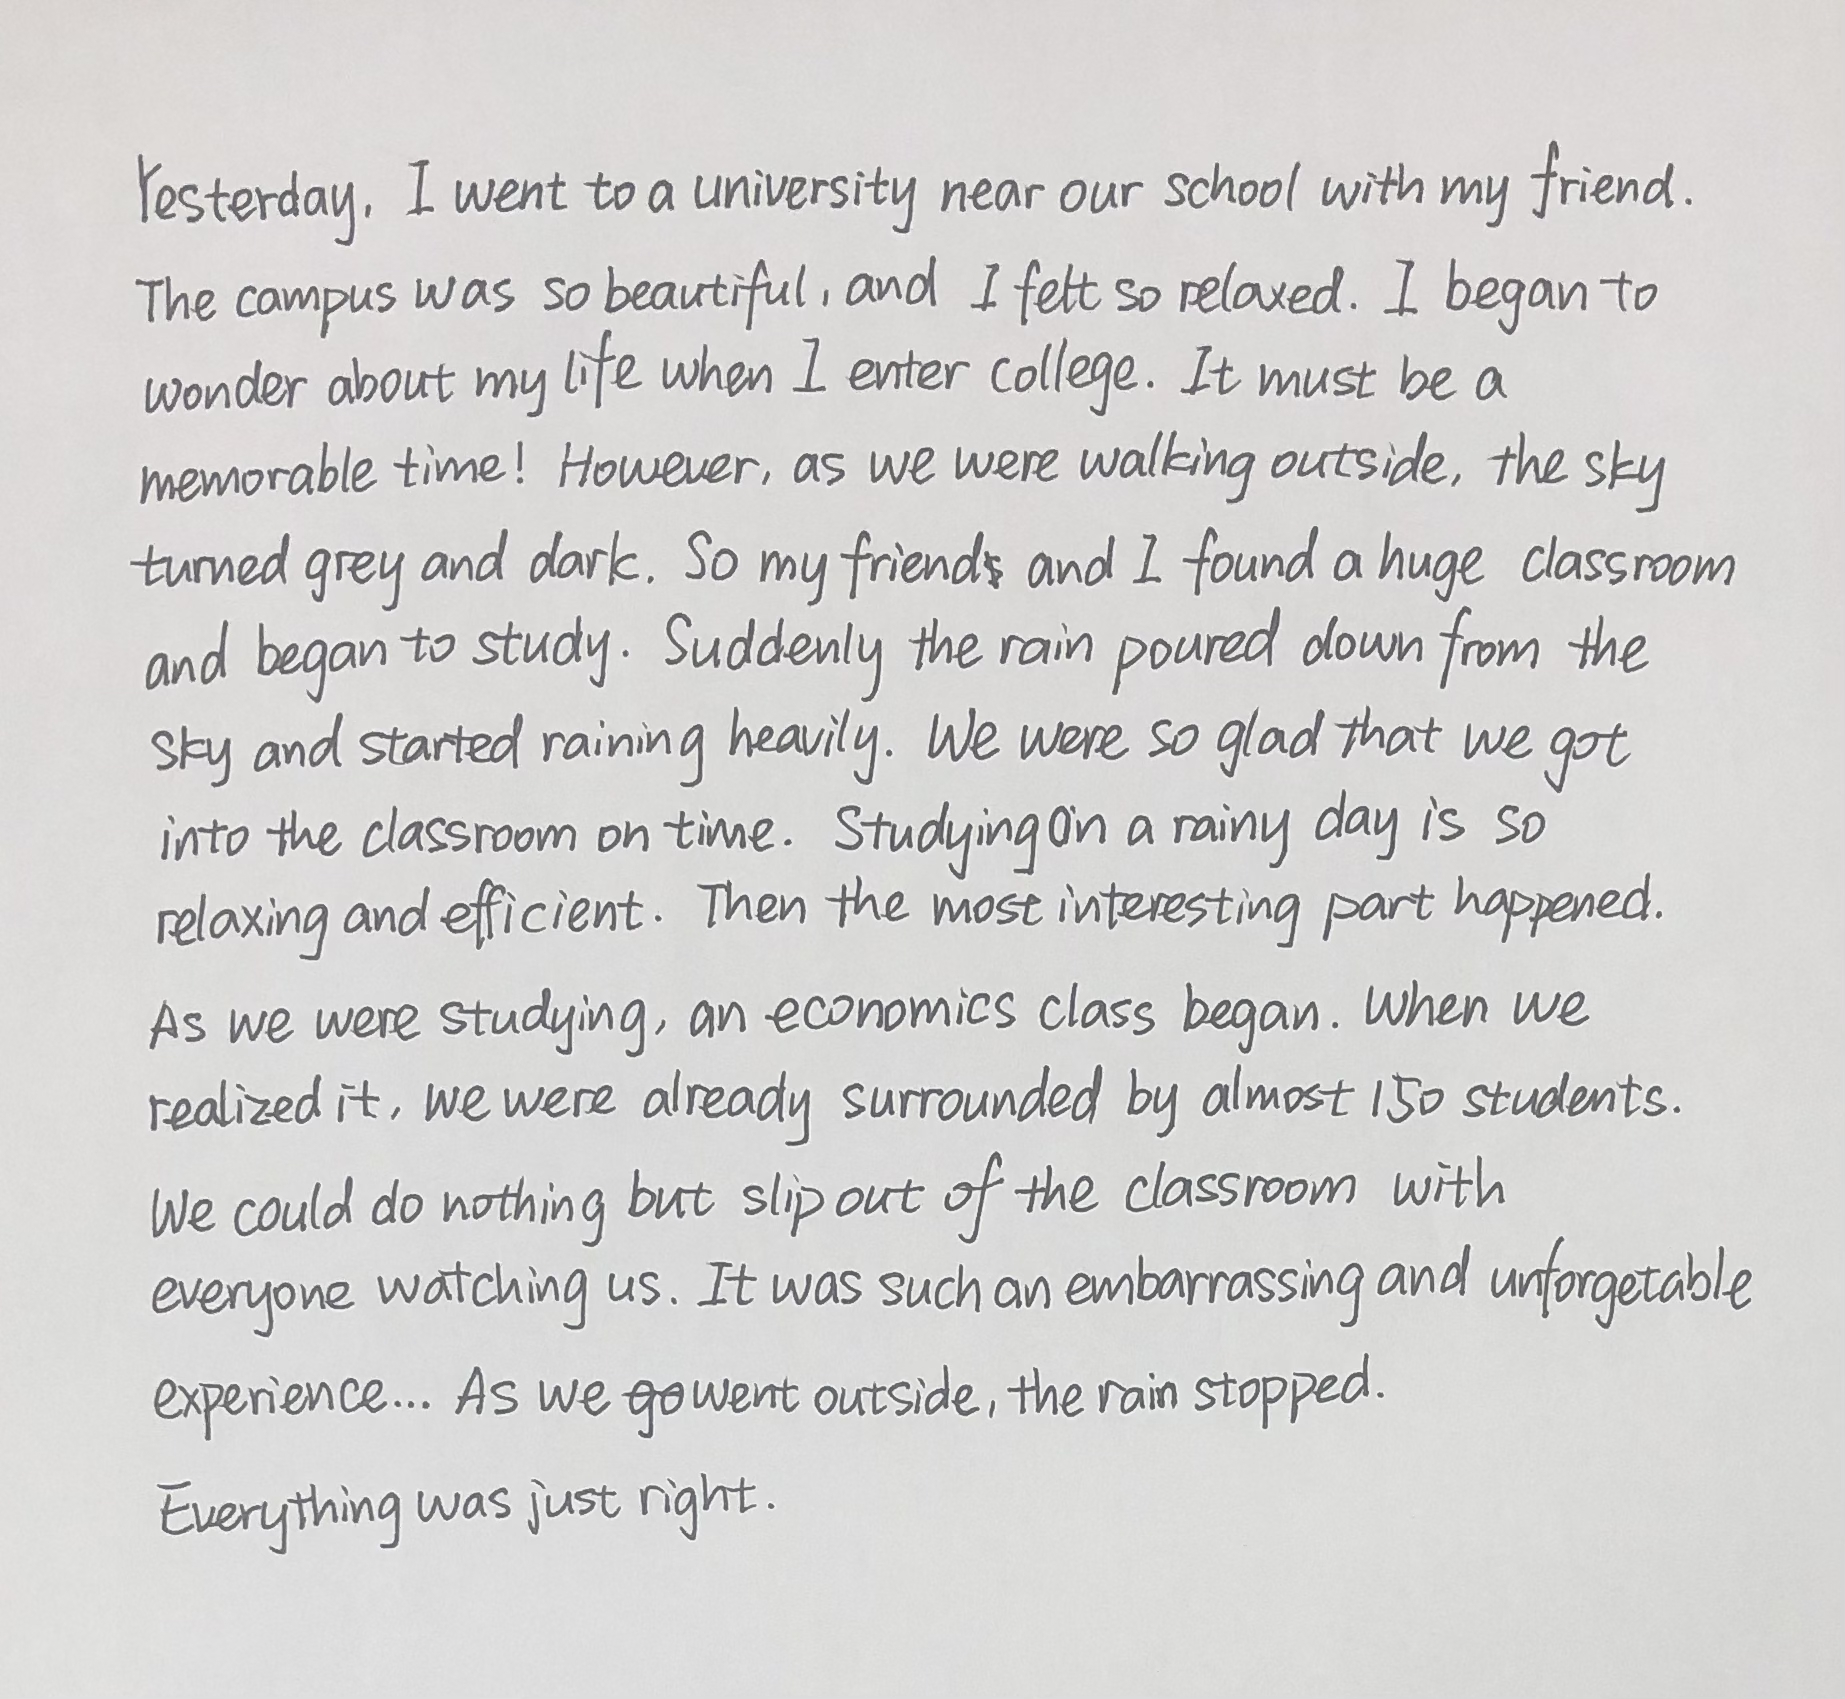 Yesterday, I went to a university near our school with my friend.
The campus was so beautiful, and I felt so relaxed. I began to
wonder about my life when I enter college. It must be a
memorable time! However, as we were walking outside, the sky
turned grey and dark. So my friends and I found a huge classroom
and began to study. Suddenly the rain poured down from the
sky and started raining heavily. We were so glad that we got
into the classroom on time. Studying on a rainy day is so
relaxing and efficient. Then the most interesting part happened.
As we were studying, an economics class began. When we
realized it, we were already surrounded by almost 150 students.
We could do nothing but slip out of the classroom with
everyone watching us. It was such an embarrassing and unforgetable
experience... As we went outside, the rain stopped.
Everything was just right.